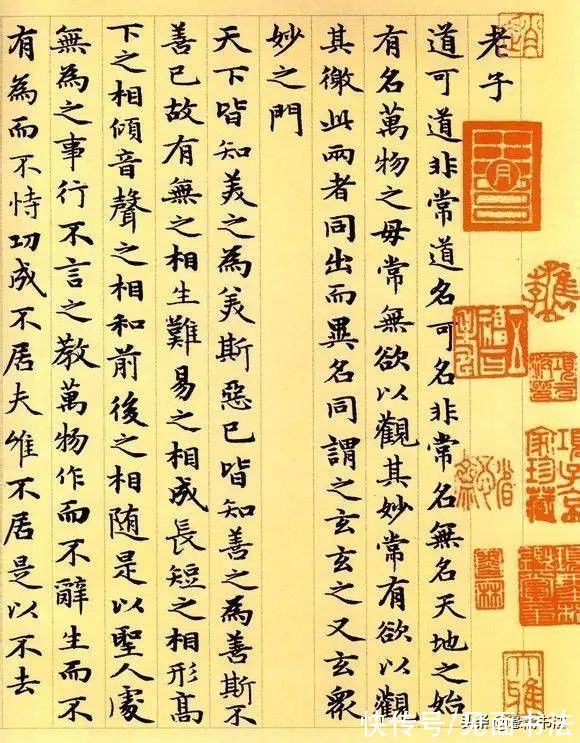 老子
道可道非常道名可名非常名無名天地之始
有名萬物之母常無欲以觀其妙常有欲以觀
其徼此兩者同出而異名同謂之玄玄之又玄眾
妙之門
天下皆知美之為美斯惡已皆知善之為善斯不
善已故有無之相生難易之相成長短之相形高
下之相傾音聲之相和前後之相随是以聖人處
無為之事行不言之教萬物作而不辭生而不
有為而不恃功成不居夫唯不居是以不去
項子京
家珍藏
快传号/见面书法